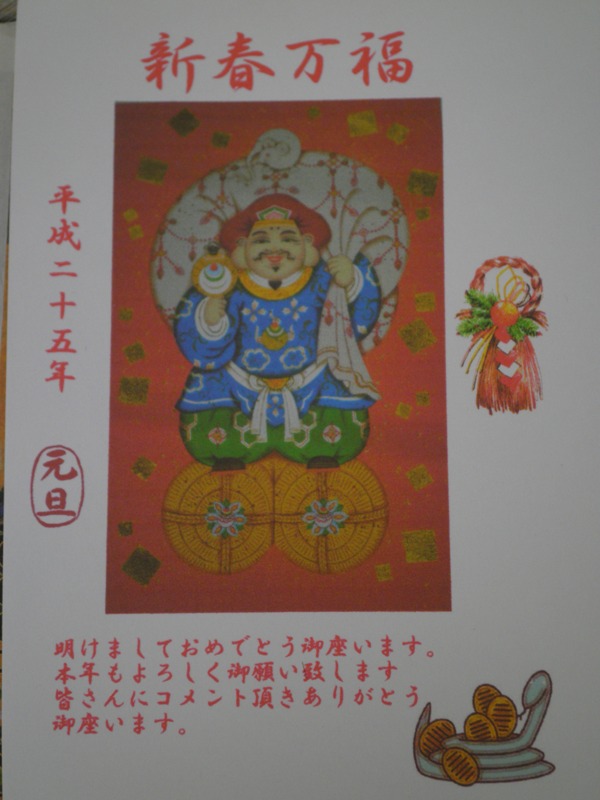 新春万福
平成二十五年
元旦
明けましておめでとう御座います。
本年もよろしく御願い致します
皆さんにコメント頂きありがとう
御座います。